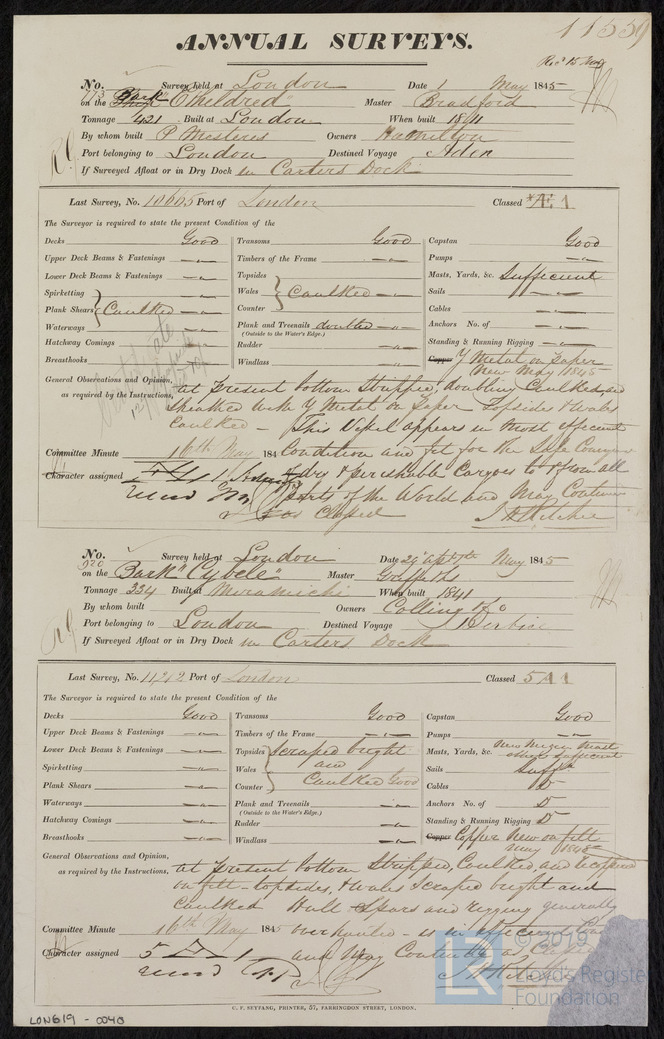 11559
ANNUAL SURVEYS.
Recd 15 May
No. 773 Survey held at London Date 1 May 1845
on the Bark "Etheldred" Master Bradford
Tonnage 421 Built at London When built 1841
By whom built P Mestires Owners Hamilton
Port belonging to London Destined Voyage Aden
If Surveyed Afloat or in Dry Dock in Carters Dock
Last Survey, No. 10605 Port of London Classed *Æ 1
The Surveyor is required to state the present Condition of the
Decks Good Transoms Good Capstan Good
Upper Deck Beams & Fastenings Timbers of the Frame Pumps
Lower Deck Beams & Fastenings Topsides Masts, Yards, &c. Sufficient
Spirketting Wales Caulked Sails
Plank Shears Caulked Counter Cables
Waterways Plank and Treenails doubled Anchors No. of
(Outside to the Water's Edge.)
Hatchway Comings Rudder Standing & Running Rigging
Breasthooks Windlass Copper Y Metal on Paper
New May 1845
General Observations and Opinion, as required by the Instructions, at present bottom Stripped, doubling Caulked, and
sheathed with Y Metal on Paper Topsides & Wales
Caulked - This Vessel appears in most efficient
Committee Minute 16th May 184 Condition and fit for the Safe Conveyance
Character assigned of dry & perishable Cargoes to & from all
parts of the World and May Continue
as Classed J H Ritchie
No. 920 Survey held at London Date May 1845
on the Bark "Cybele" Master Griffiths
Tonnage 334 Built at Miramichi When built 1841
By whom built Owners Colling & Co
Port belonging to London Destined Voyage Berbice
If Surveyed Afloat or in Dry Dock in Carters Dock
Last Survey, No. 11212 Port of London Classed 5 A 1
The Surveyor is required to state the present Condition of the
Decks Good Transoms Good Capstan Good
Upper Deck Beams & Fastenings Timbers of the Frame Pumps
Lower Deck Beams & Fastenings Topsides scraped bright Masts, Yards, &c. New Mizen Mast
others sufficient
Spirketting Wales and Sails Sufft
Plank Shears Counter Caulked Good Cables D
Waterways Plank and Treenails Anchors No. of D
(Outside to the Water's Edge.)
Hatchway Comings Rudder Standing & Running Rigging D
Breasthooks Windlass Copper Copper New on felt
May 1845
General Observations and Opinion, as required by the Instructions, at present bottom Stripped, Caulked, and Coppered
on felt - topsides, & Wales scraped bright and
Caulked Hull Spars and rigging generally
Committee Minute 16th May 1845 overhauled - is in efficient
Character assigned 5 A 1 and May Continue as Classed
J H Ritchie
C. F. SEYFANG, PRINTER, 57, FARRINGDON STREET, LONDON.
LON619 - 0040
© 2019
Lloyd's Register
Foundation